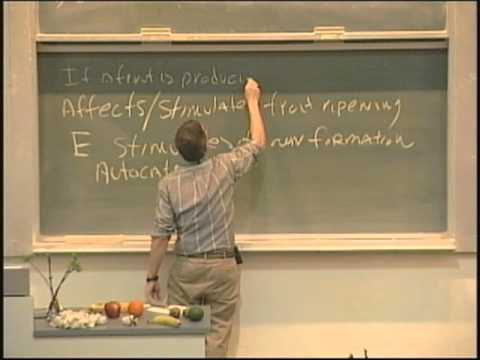 If a fruit is produci
Affects/Stimulate fruit ripening
E Stimulates own formation
Autocat